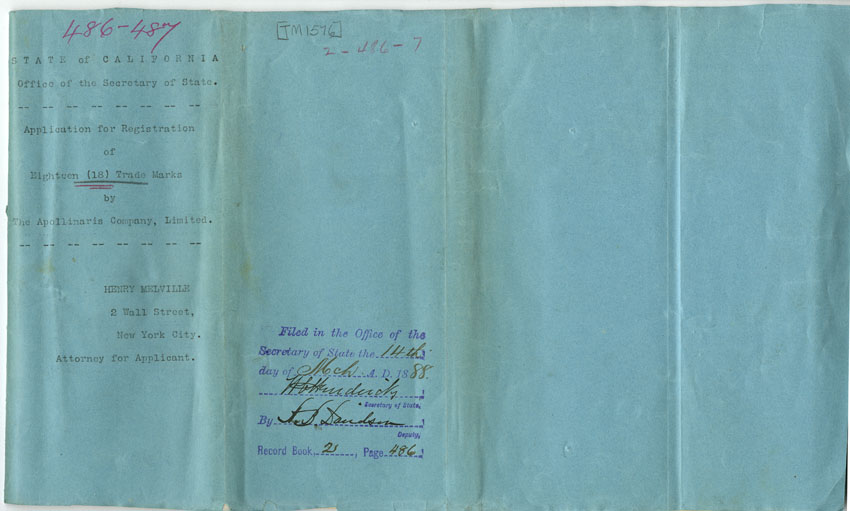 486-487
STATE of CALIFORNIA
Office of the Secretary of State.
-- -- -- -- -- -- -- --
Application for Registration
of
Eighteen (18) Trade Marks
by
The Apollinaris Company, Limited.
-- -- -- -- -- -- -- --
HENRY MELVILLE
2 Wall Street,
New York City.
Attorney for Applicant.
[TM1576]
2-486-7
Filed in the Office of the
Secretary of State the 14th
day of Mch A. D. 1888
Hendricks
Secretary of State,
By Davidson
Deputy,
Record Book, 2, Page 486